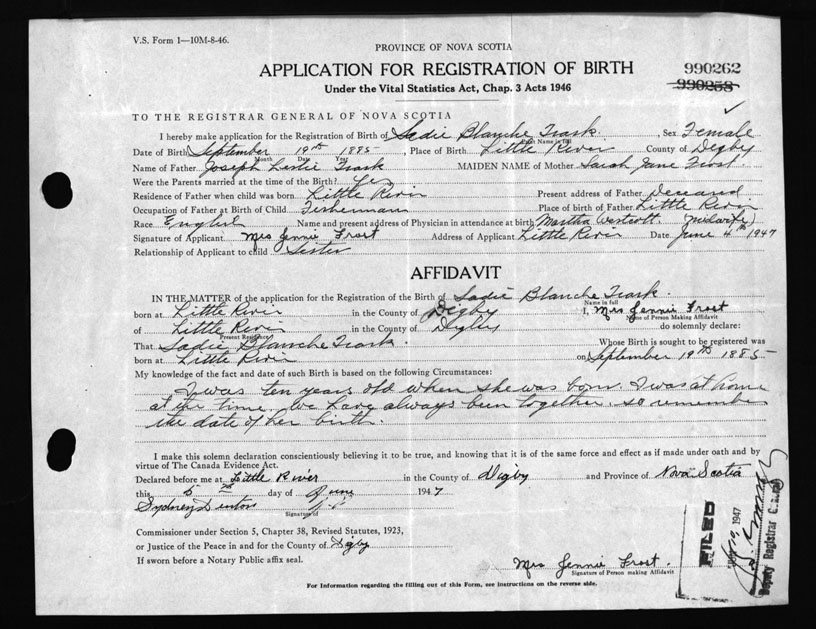 V.S. Form 1—10M-8-46.
PROVINCE OF NOVA SCOTIA
APPLICATION FOR REGISTRATION OF BIRTH
990262
990258
Under the Vital Statistics Act, Chap. 3 Acts 1946
TO THE REGISTRAR GENERAL OF NOVA SCOTIA
I hereby make application for the Registration of Birth of Sadie Blanche Trask. , Sex Female
Name in full
Date of Birth September 19th 1885 , Place of Birth Little River County of Digby
Month Date Year
Name of Father Joseph Leslie Trask MAIDEN NAME of Mother Sarah Jane Frost.
Were the Parents married at the time of the Birth? Yes
Residence of Father when child was born Little River Present address of Father Deceased
Occupation of Father at Birth of Child Fishermann Place of birth of Father Little River
Race English Name and present address of Physician in attendance at birth Martha Westcott. (Midwife)
Signature of Applicant Mrs Jennie Frost Address of Applicant Little River Date June 4th 1947
Relationship of Applicant to child Sister
AFFIDAVIT
IN THE MATTER of the application for the Registration of the Birth of Sadie Blanche Trask.
Name in full
born at Little River in the County of Digby I, Mrs Jennie Frost
Name of Person Making Affidavit
of Little River in the County of Digby do solemnly declare:
Present Residence
That Sadie Blanche Trask. Whose Birth is sought to be registered was
born at Little River on September 19th 1885
My knowledge of the fact and date of such Birth is based on the following Circumstances:
I was ten years old when she was born. I was at home
at the time. We have always been together. so remember
the date of her birth.
I make this solemn declaration conscientiously believing it to be true, and knowing that it is of the same force and effect as if made under oath and by
virtue of The Canada Evidence Act.
Declared before me at Little River in the County of Digby and Province of Nova Scotia
this 5 day of June 1947
Sydney Denton J.P.
Signature of
Commissioner under Section 5, Chapter 38, Revised Statutes, 1923,
or Justice of the Peace in and for the County of Digby
If sworn before a Notary Public affix seal.
Mrs Jennie Frost.
Signature of Person making Affidavit
For Information regarding the filling out of this Form, see instructions on the reverse side.
FILED
1947
Deputy Registrar